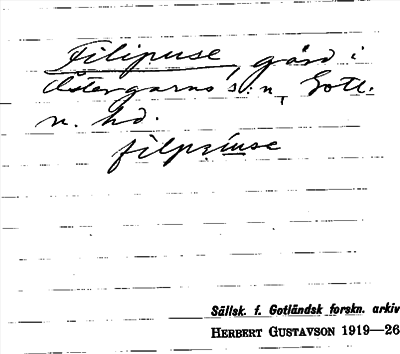 Filipuse, gård i
Östergarns s:n, Gotl.
n. hd.
filpsiuse
Sällsk. f. Gotländsk forskn. arkiv
HERBERT GUSTAVSON 1919—26